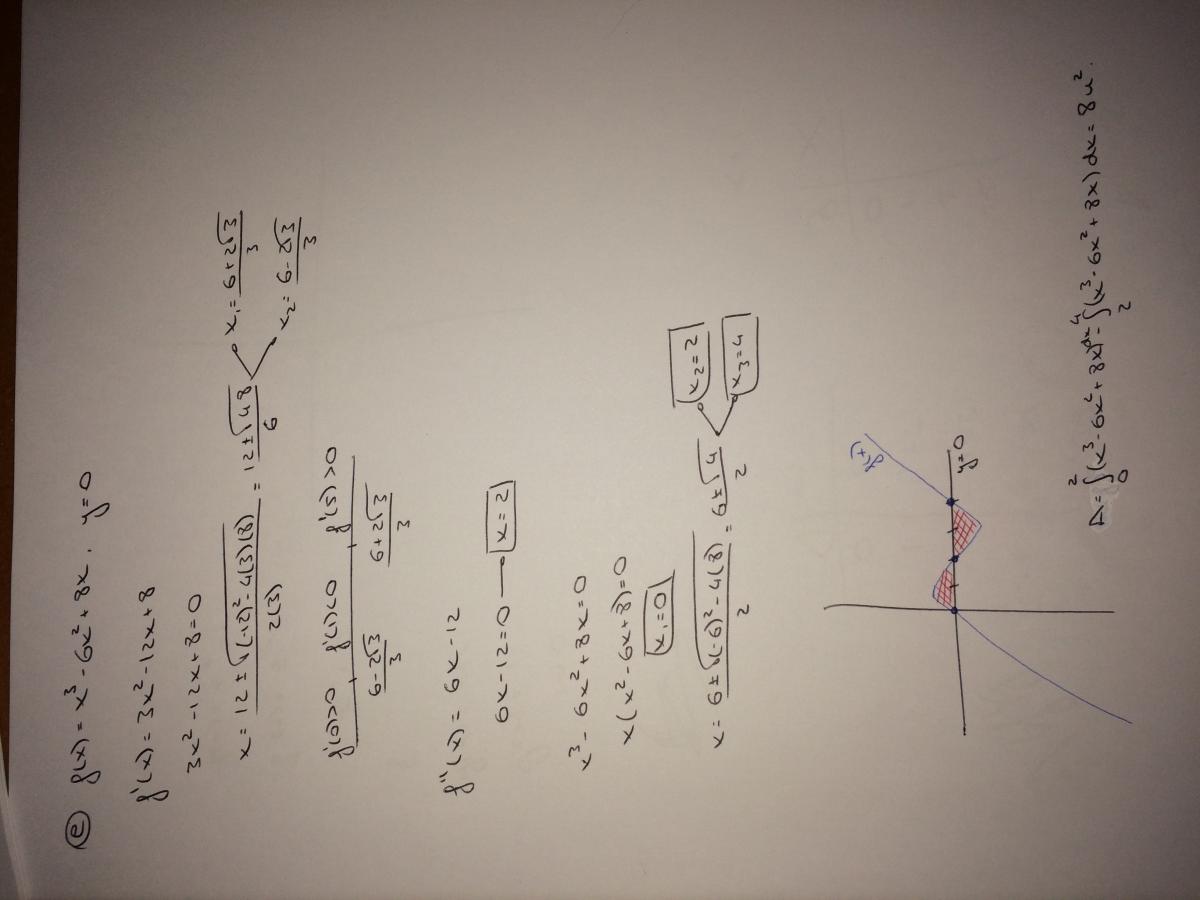 ⓔ f(x) = x³ - 6x² + 8x, y = 0
f'(x) = 3x² - 12x + 8
3x² - 12x + 8 = 0
x = (12 ± √((-12)² - 4(3)(8)))/2(3) = (12 ± √48)/6
x₁ = (6 + 2√3)/3
x₂ = (6 - 2√3)/3
f'(0) > 0 f'(2) < 0 f'(5) > 0
(6 - 2√3)/3 (6 + 2√3)/3
f''(x) = 6x - 12
6x - 12 = 0 x = 2
x³ - 6x² + 8x = 0
x(x² - 6x + 8) = 0
x₁ = 0
x = (6 ± √((-6)² - 4(8)))/2 = (6 ± √4)/2
x₂ = 2
x₃ = 4
f(x)
y = 0
A = ∫₀² (x³ - 6x² + 8x) dx - ∫₂⁴ (x³ - 6x² + 8x) dx = 8u².